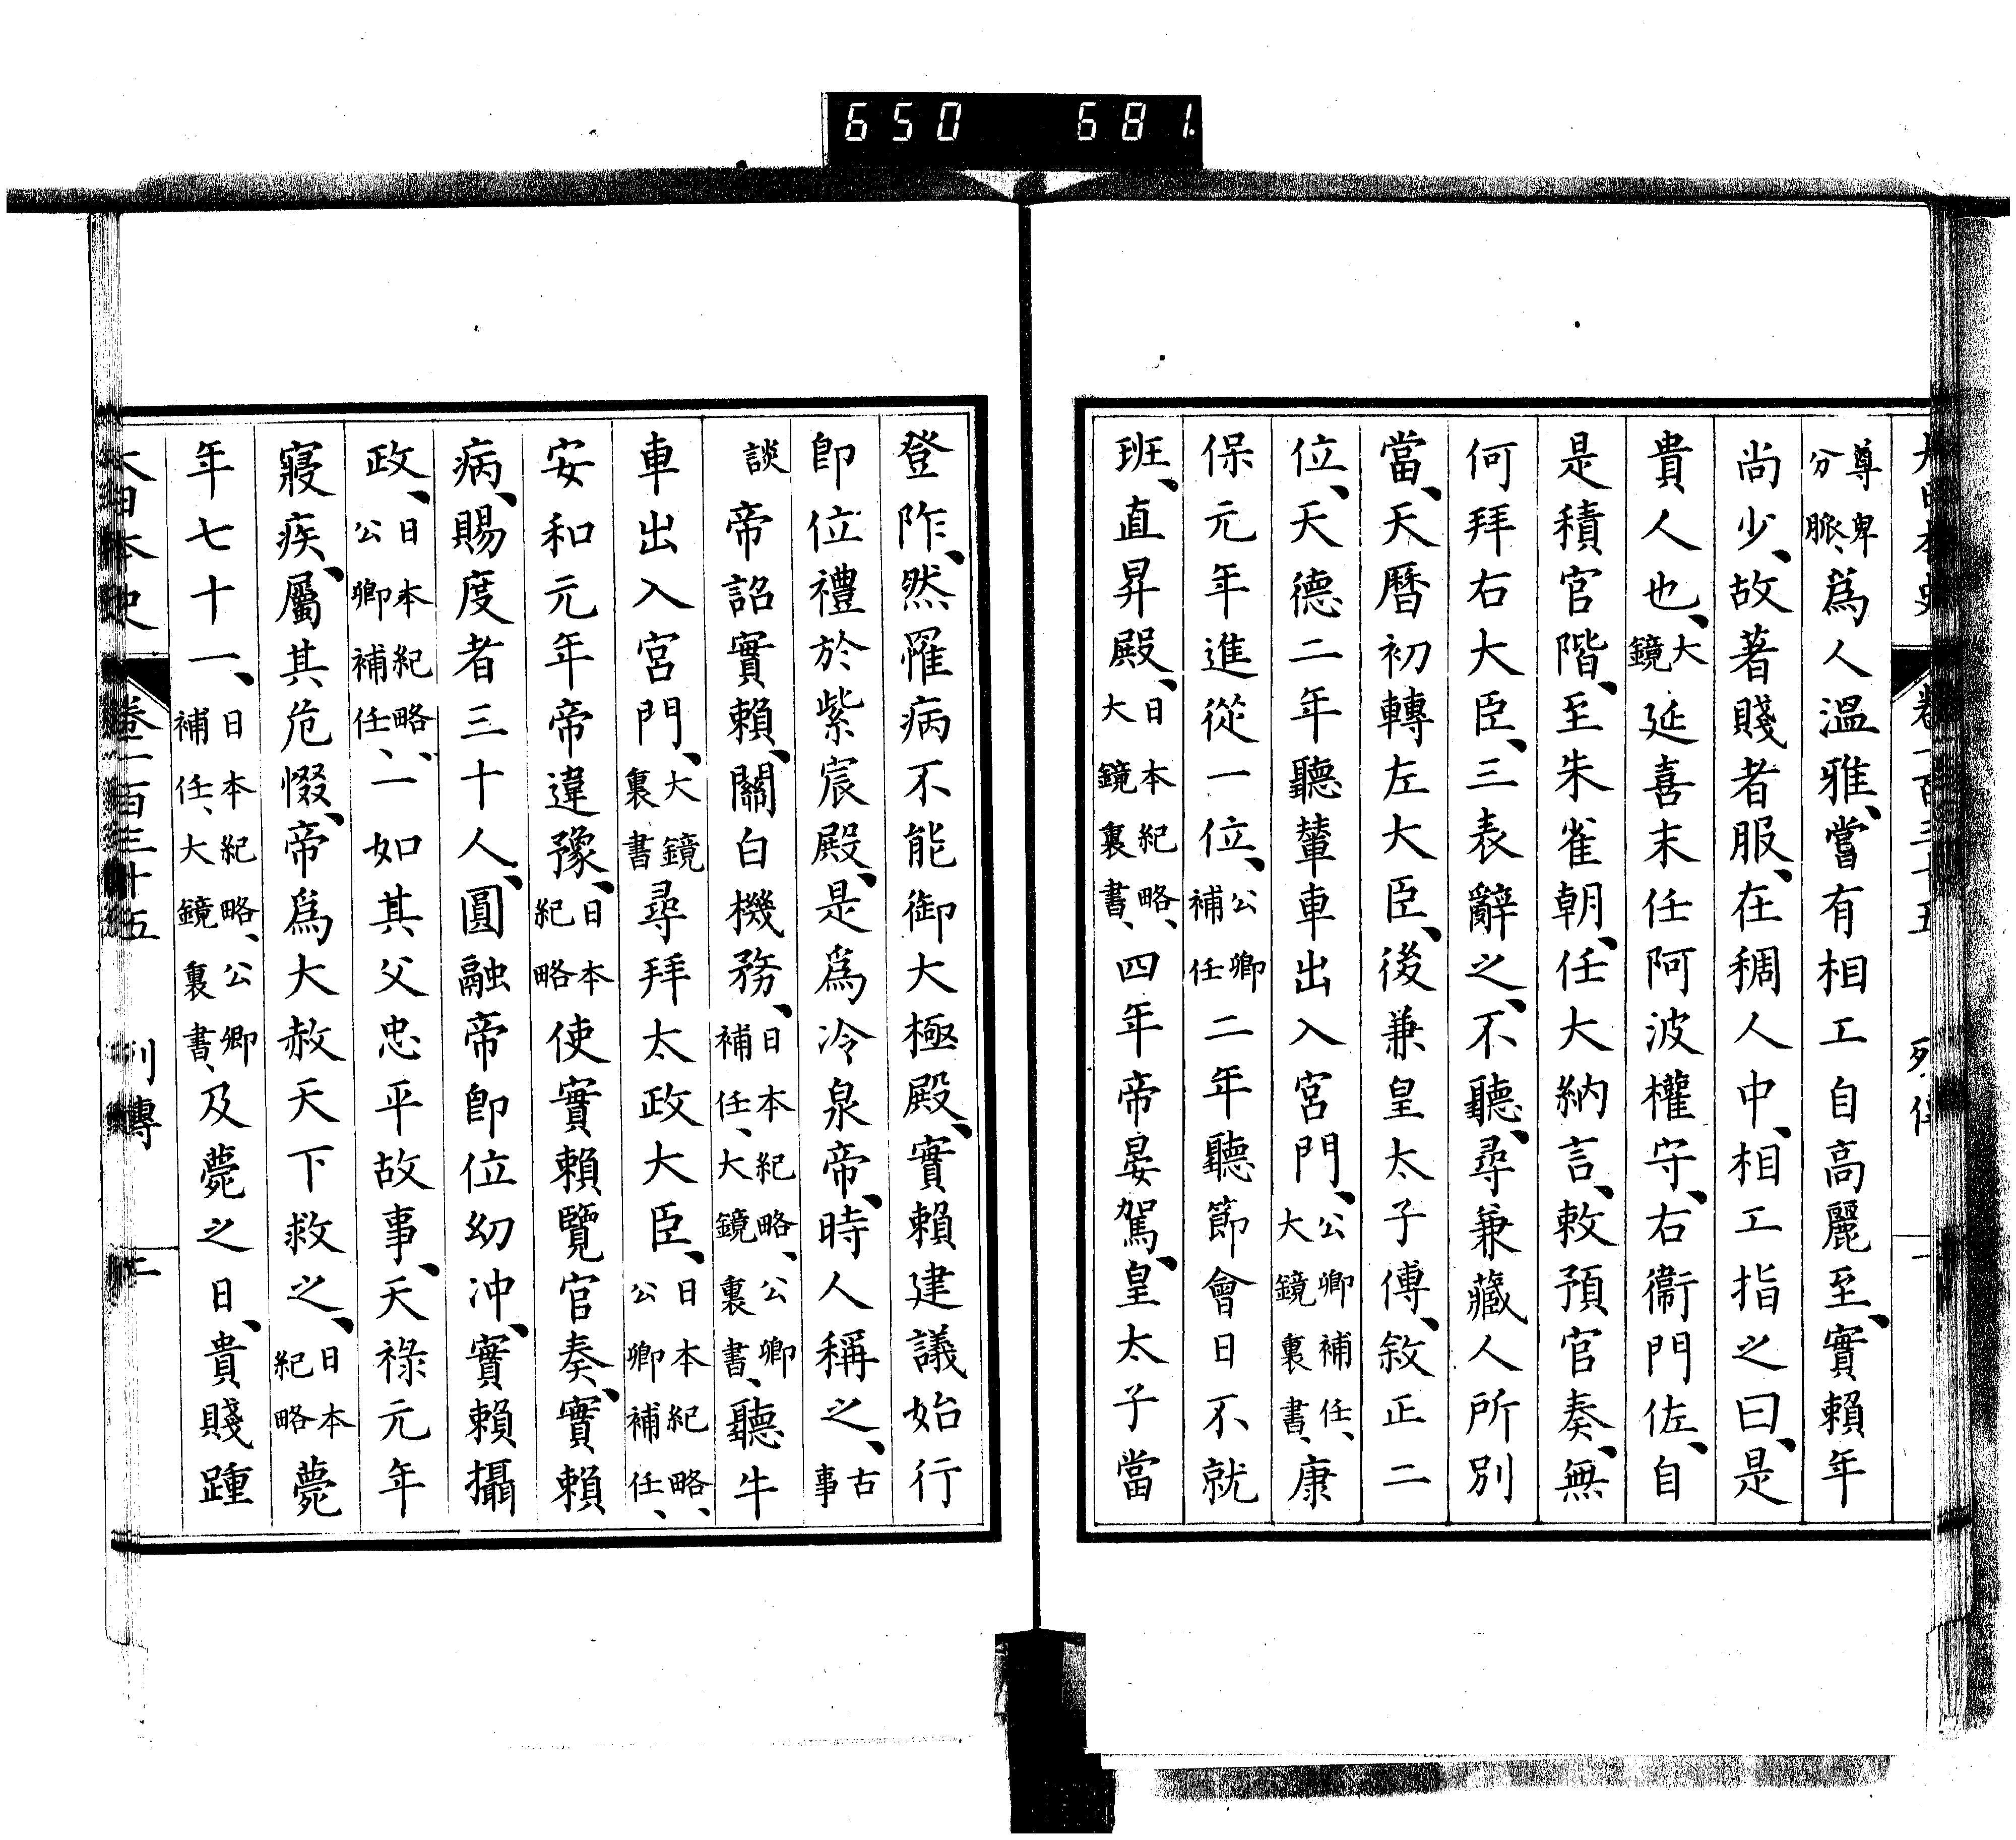 650 681.
大日本史 卷一百三十五 列傳 一
尊卑分脈、爲人溫雅、嘗有相工自高麗至、實賴年
尚少、故著賤者服、在稠人中、相工指之曰、是
貴人也、大鏡延喜末任阿波權守、右衞門佐、自
是積官階、至朱雀朝、任大納言、敕預官奏、無
何拜右大臣、三表辭之、不聽、尋兼藏人所別
當、天曆初轉左大臣、後兼皇太子傅、敘正二
位、天德二年聽輦車出入宮門、公卿補任、大鏡裏書、康
保元年進從一位、公卿補任二年聽節會日不就
班、直昇殿、日本紀略、大鏡裏書、四年帝晏駕、皇太子當
登阼、然罹病不能御大極殿、實賴建議始行
卽位禮於紫宸殿、是爲冷泉帝、時人稱之、古事
談帝詔實賴、關白機務、日本紀略、公卿補任、大鏡裏書、聽牛
車出入宮門、大鏡裏書尋拜太政大臣、日本紀略、公卿補任、
安和元年帝違豫、日本紀略使實賴覽官奏、實賴
病、賜度者三十人、圓融帝卽位幼冲、實賴攝
政、日本紀略、公卿補任、一如其父忠平故事、天祿元年
寢疾、屬其危惙、帝爲大赦天下救之、日本紀略薨
年七十一、日本紀略、公卿補任、大鏡裏書、及薨之日、貴賤踵
大日本史 卷一百三十五 列傳 二